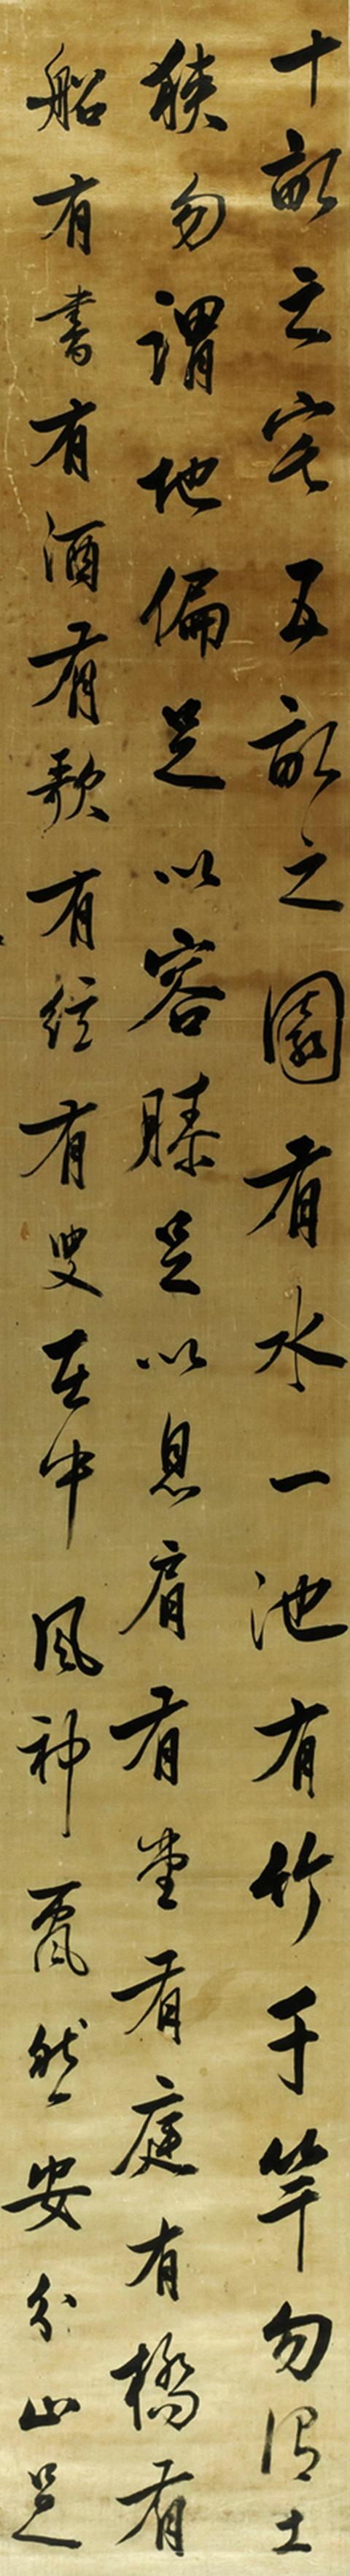 十畝之宅五畝之園有水一池有竹千竿勿謂土
狹勿謂地偏足以容膝足以息肩有堂有庭有橋有
船有書有酒有歌有絃有叟在中風神飄然安分止足